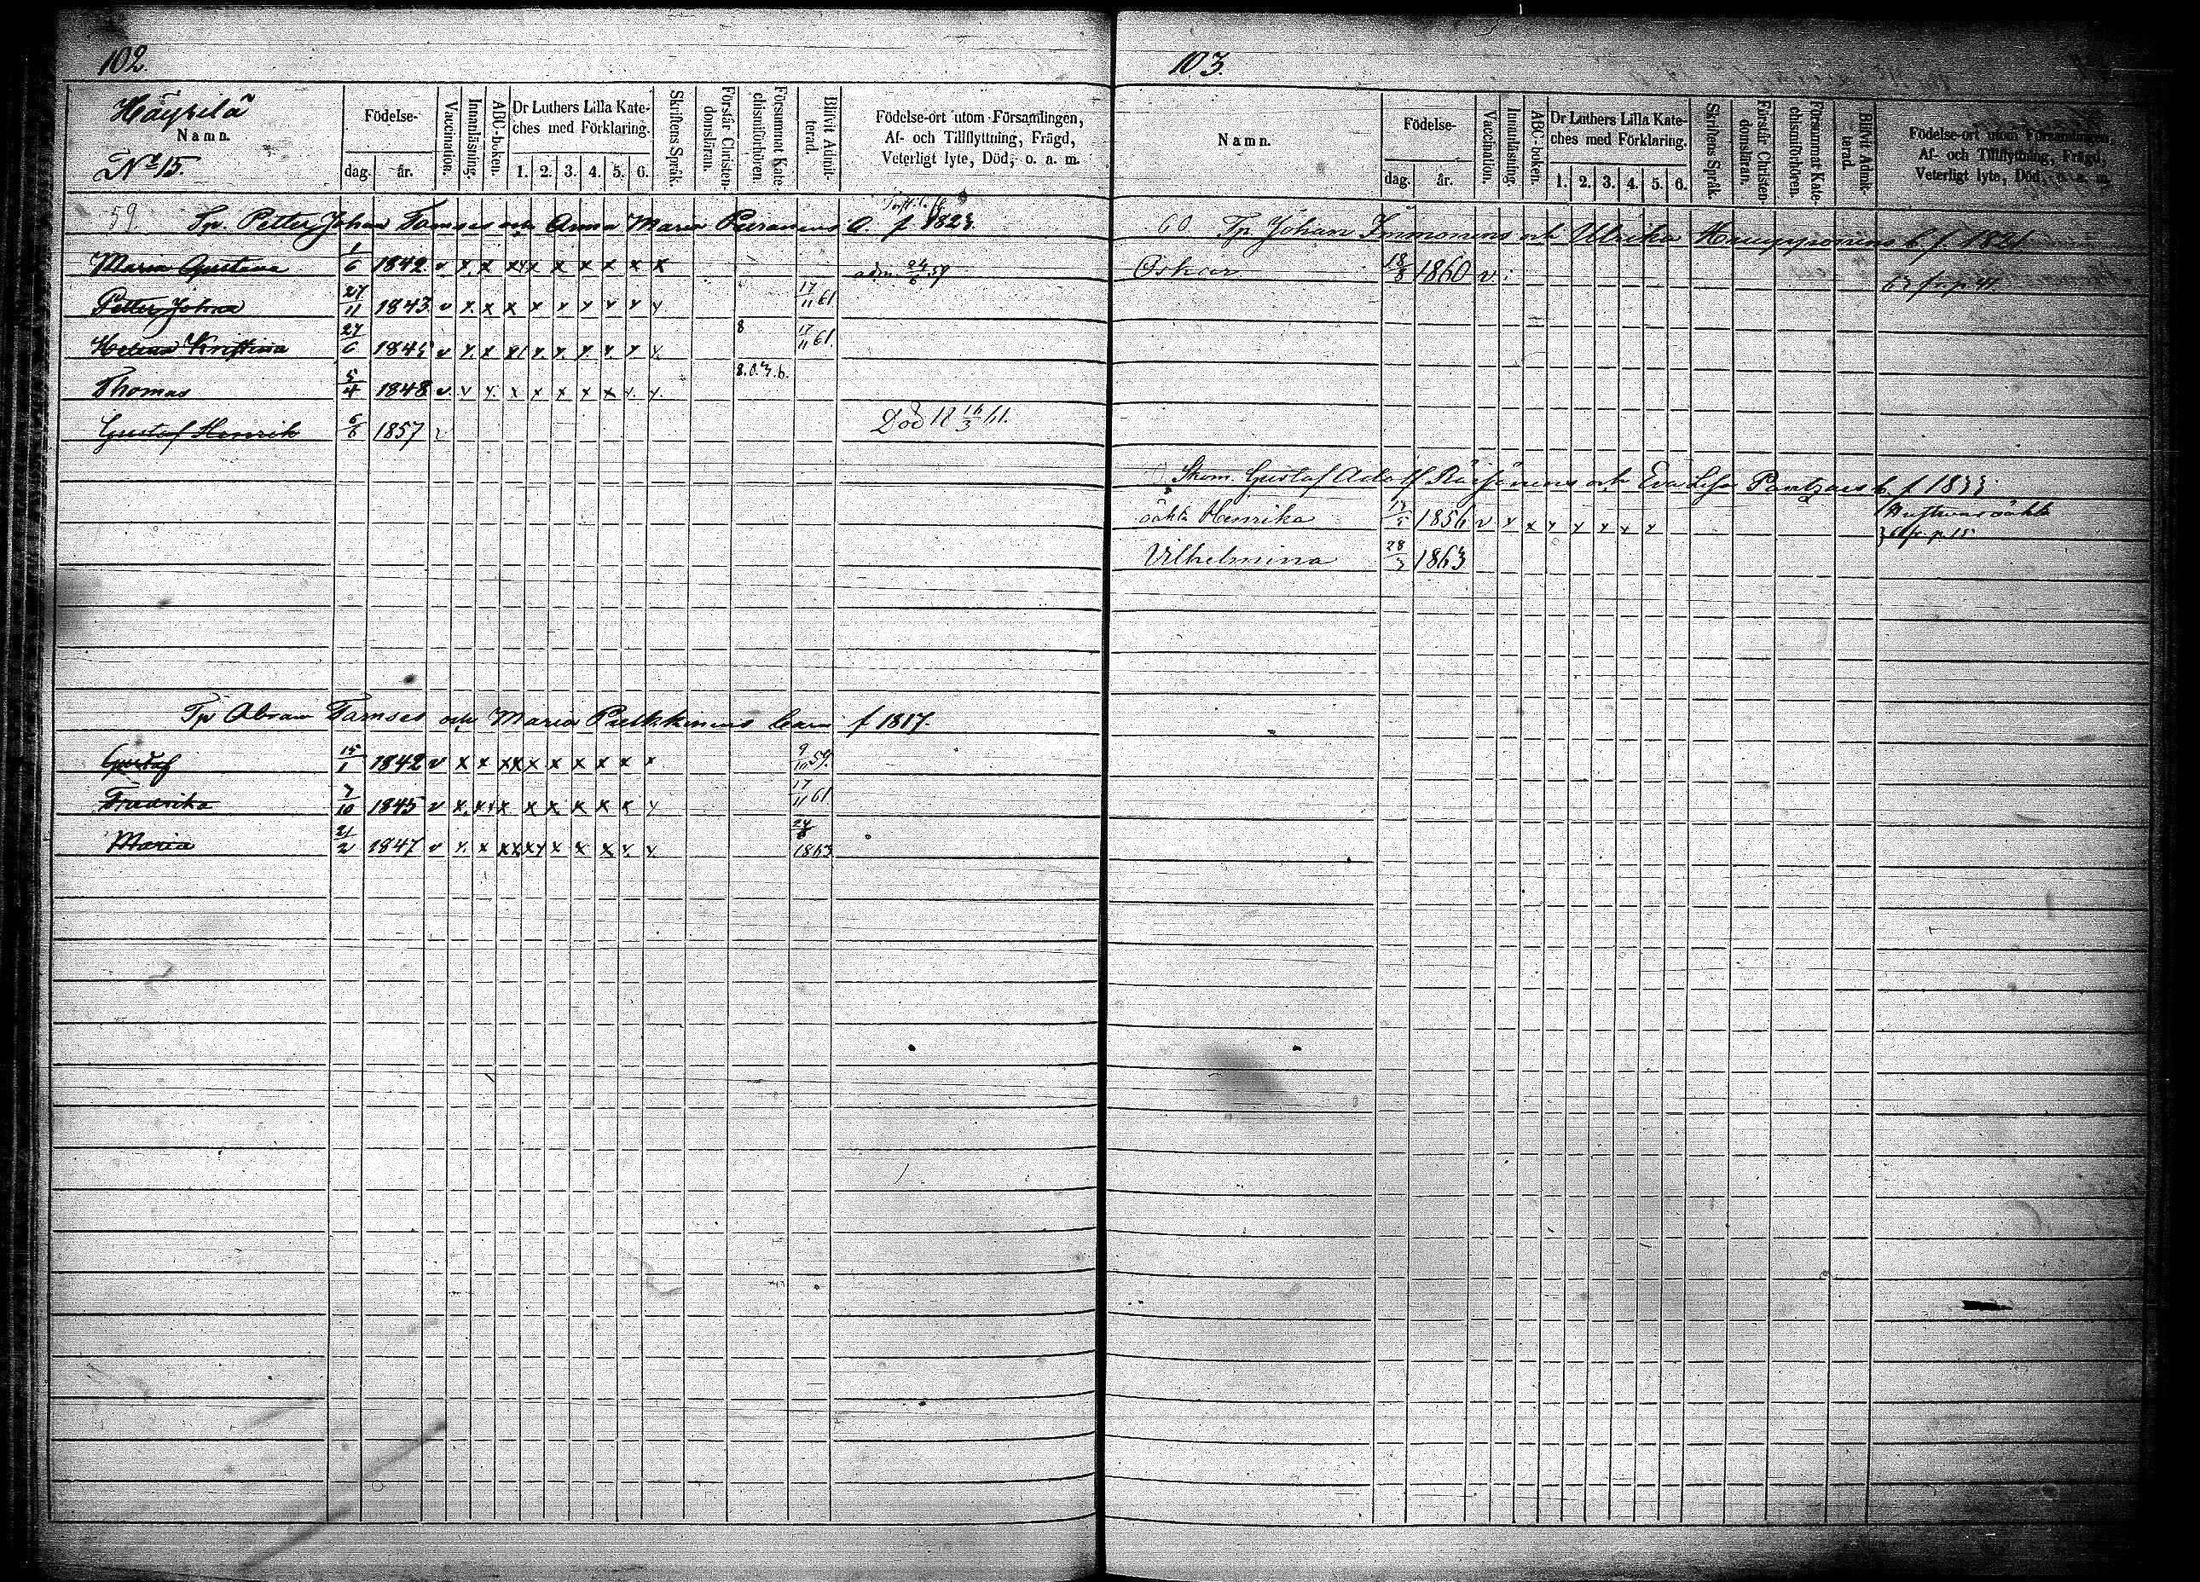 102.
Häyrilä
Namn.
No 15.
Födelse-
dag. år.
Vaccination.
Innanläsning.
ABC-boken.
Dr Luthers Lilla Kate-
ches med Förklaring.
1. 2. 3. 4. 5. 6.
Skriftens Språk.
Förstår Christen-
domsläran.
Försummat Kate-
chismiförhören.
Blifvit Admit-
terad.
Födelse-ort utom Församlingen,
Af- och Tillflyttning, Frägd,
Veterligt lyte, Död, o. a. m.
59. Tp. Petter Johan Tamses och Anna Maria f 1823
Maria Gustava 1/6 1842 v x x xx x x x x x x x adm. 24/6 59
Petter Johan 27/11 1843 v x x x x x x x x x 17/11 61
Helena Kristina 27/6 1845 v x x x x x x x x x 8 17/11 61
Thomas 5/4 1848 v v x x x x x x x x 8.0.3.6.
Gustaf Henrik 6/8 1857 v Död 18 16/3 61.
Tp Abram Tamses och Maria Pulkkinens barn f 1817.
Gustaf 15/1 1842 v x x xx x x x x x x 9/11 59.
Fredrika 7/10 1845 v x x x x x x x x x 17/11 61
Maria 21/2 1847 v x x xx x x x x x x 24/8 1863
103.
Namn.
Födelse-
dag. år.
Vaccination.
Innanläsning.
ABC-boken.
Dr Luthers Lilla Kate-
ches med Förklaring.
1. 2. 3. 4. 5. 6.
Skriftens Språk.
Förstår Christen-
domsläran.
Försummat Kate-
chismiförhören.
Blifvit Admit-
terad.
Födelse-ort utom Församlingen,
Af- och Tillflyttning, Frägd,
Veterligt lyte, Död, o. a. m.
60. Tp. Johan Immonens och Ulrika Haupponens b. f 1821
Oskar 18/8 1860 v. 63 fr. p 41
Skom. Gustaf Adolf Räisänens och Eva Lisa Pantzars b. f 1833
oäkta Henrika 17/5 1856 v x x x x x x x Hustrus oäkta
Vilhelmina 28/7 1863 fr p 15